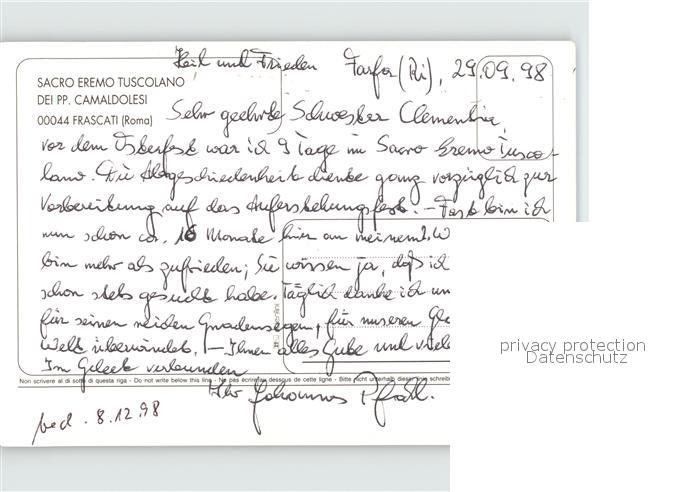 Heil und Frieden Farfa (Ri), 29.09.98
SACRO EREMO TUSCOLANO
DEI PP. CAMALDOLESI
00044 FRASCATI (Roma)
Sehr geehrte Schwester Clementia,
vor dem Osterfest war ich 9 Tage im Sacro Eremo Tusco-
lano. Die Abgeschiedenheit diente ganz vorzüglich zur
Vorbereitung auf das Auferstehungsfest. – Fast bin ich
nun schon ca. 10 Monate hier an meinem
bin mehr als zufrieden; Sie wissen ja, daß ich
schon stets gesucht habe. Täglich danke ich
für seinen Gnadensegen, für unseren
Welt überwindet. – Ihnen alles Gute und viele
Im Gebet verbunden
Non scrivere al di sotto di questa riga - Do not write below this line - Ne pas écrire au dessous de cette ligne - Bitte nicht unterhalb dieser
Ihr Johannes
8.12.98
privacy protection
Datenschutz